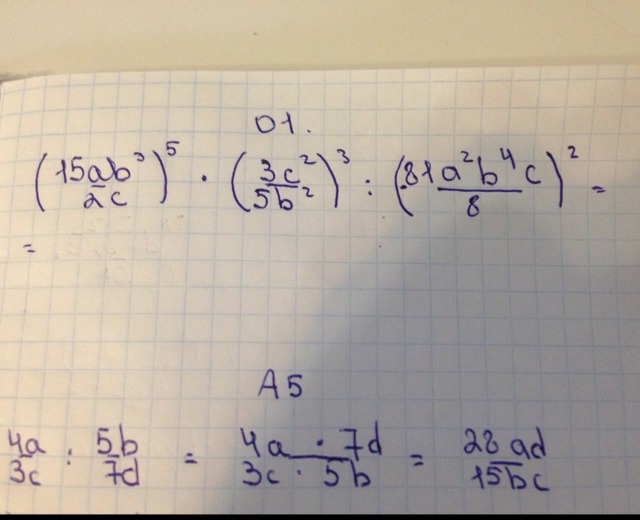 01.
(15ab³/2c)⁵ · (3c²/5b²)³ : (81a²b⁴c/8)² =
=
A5
4a/3c : 5b/7d = 4a · 7d/3c · 5b = 28ad/15bc